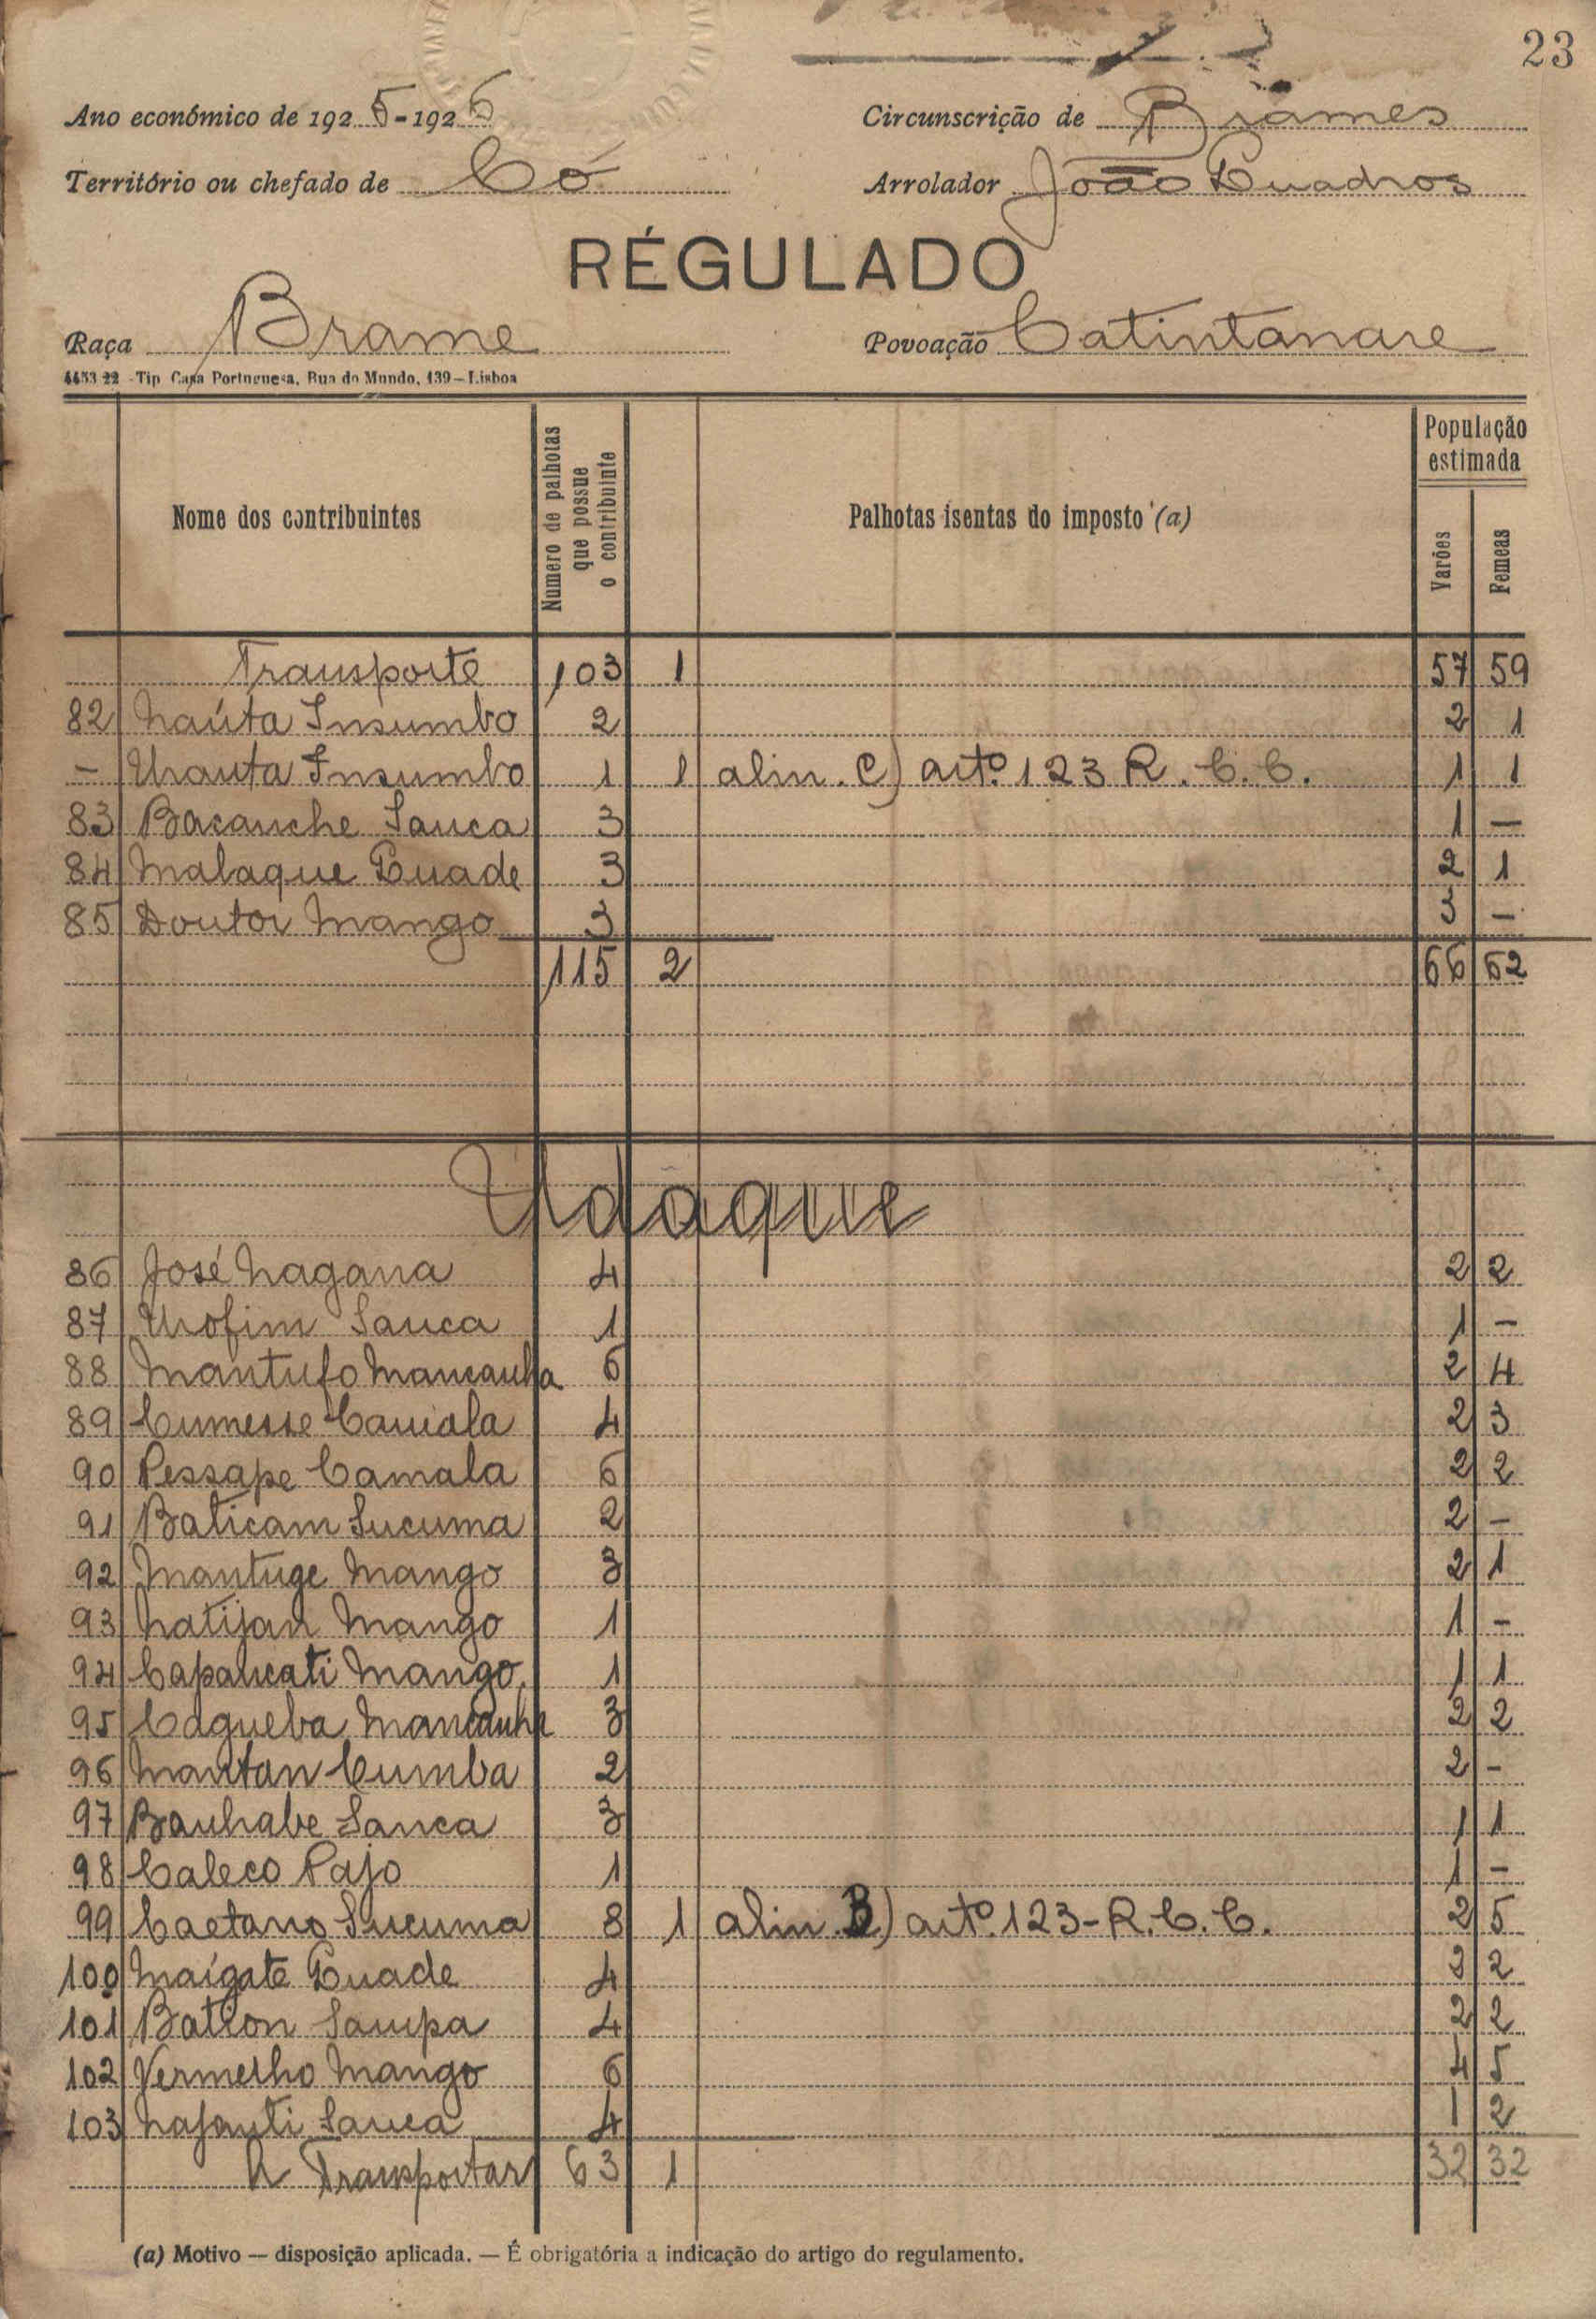 23
Ano económico de 1925-1926 Circunscrição de Brames
Território ou chefado de Có Arrolador João Quadros
RÉGULADO
Raça Brame Povoação Catintanare
4453-22 - Tip Casa Portuguesa, Rua do Mundo, 139 - Lisboa
Nome dos contribuintes Numero de palhotas que possue o contribuinte Palhotas isentas do imposto (a) População estimada Varões Femeas
Transporte 103 1 57 59
82 Naúta Insumbo 2 2 1
- Uhauta Insumbo 1 1 alin. C) artº. 123 R. C. C. 1 1
83 Bacanche Sanca 3 1 -
84 Malaque Quade 3 2 1
85 Doutor Mango 3 3 -
115 2 66 62
Udaque
86 José Nagana 4 2 2
87 Uhofim Sanca 1 1 -
88 Mantufo Mancanha 6 2 4
89 Cumesse Camala 4 2 3
90 Pessape Camala 6 2 2
91 Baticam Sucuma 2 2 -
92 Mantuge Mango 3 2 1
93 Natijan Mango 1 1 -
94 Capancati Mango 1 1 1
95 Cagueba Mancanha 3 2 2
96 Mantan Cumba 2 2 -
97 Banhabe Sanca 3 1 1
98 Caleco Pajo 1 1 -
99 Caetano Sucuma 8 1 alin. B) artº. 123 - R. C. C. 2 5
100 Maígate Quade 4 2 2
101 Bation Sampa 4 2 2
102 Vermelho Mango 6 4 5
103 Nafanti Sanca 4 1 2
A Transportar 63 1 32 32
(a) Motivo — disposição aplicada. — É obrigatória a indicação do artigo do regulamento.